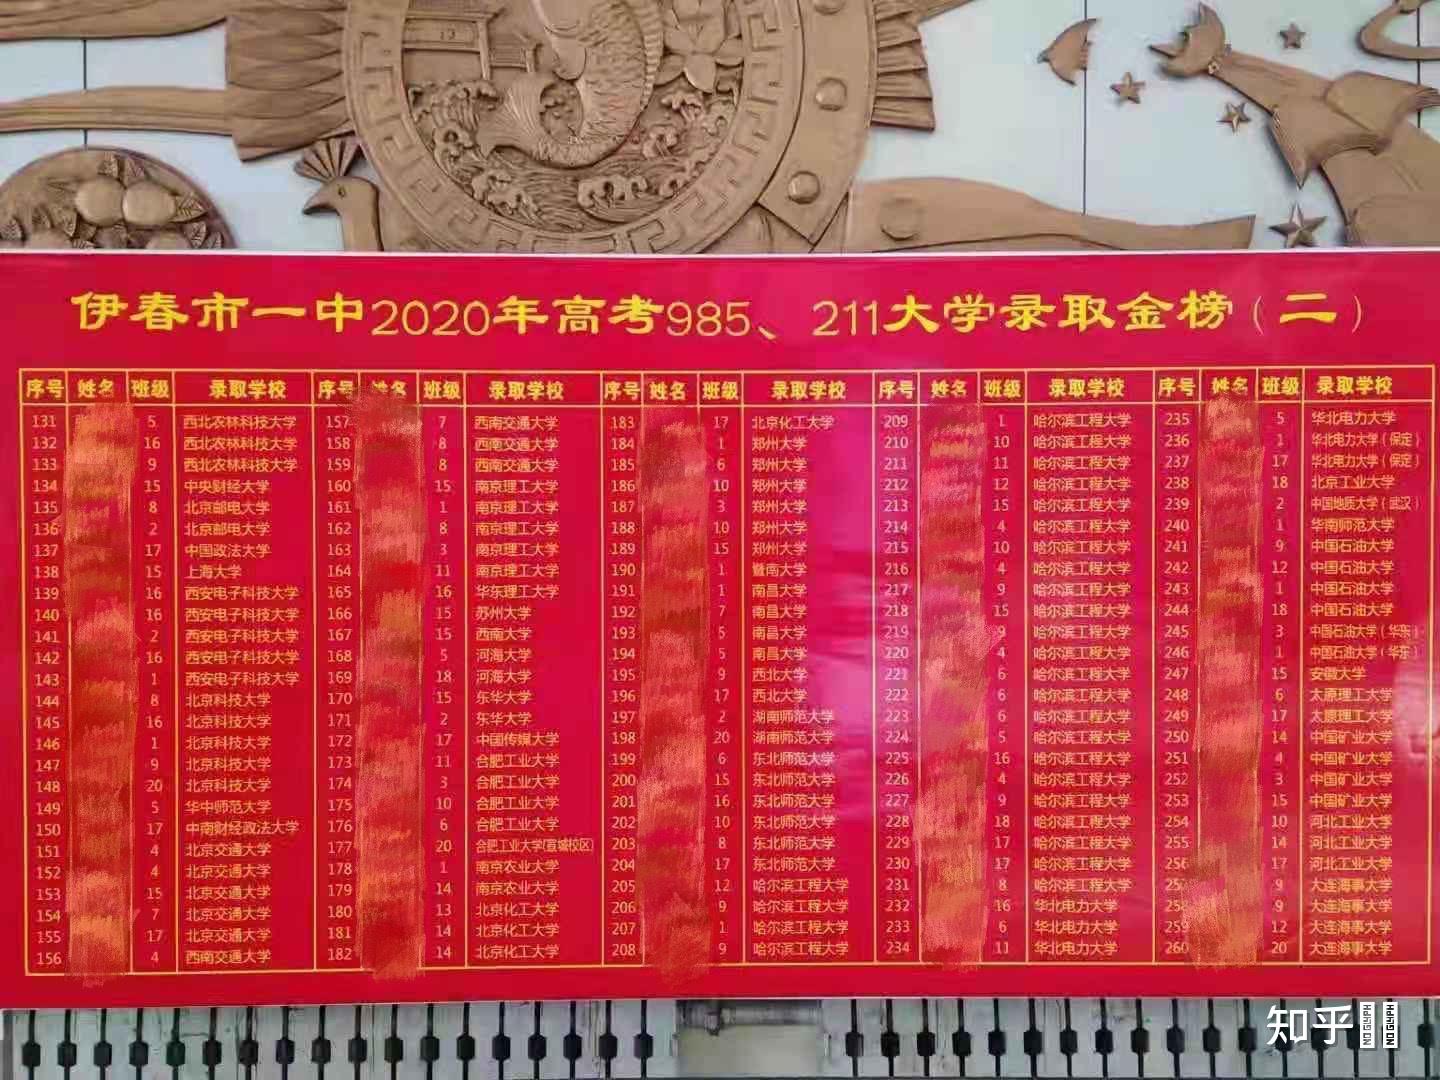 伊春市一中2020年高考985、211大学录取金榜（二）
序号 姓名 班级 录取学校 序号 姓名 班级 录取学校 序号 姓名 班级 录取学校 序号 姓名 班级 录取学校 序号 姓名 班级 录取学校
131 5 西北农林科技大学 157 7 西南交通大学 183 17 北京化工大学 209 1 哈尔滨工程大学 235 5 华北电力大学
132 16 西北农林科技大学 158 8 西南交通大学 184 1 郑州大学 210 10 哈尔滨工程大学 236 1 华北电力大学（保定）
133 9 西北农林科技大学 159 8 西南交通大学 185 6 郑州大学 211 11 哈尔滨工程大学 237 17 华北电力大学（保定）
134 15 中央财经大学 160 15 南京理工大学 186 10 郑州大学 212 12 哈尔滨工程大学 238 18 北京工业大学
135 8 北京邮电大学 161 1 南京理工大学 187 3 郑州大学 213 15 哈尔滨工程大学 239 2 中国地质大学（武汉）
136 2 北京邮电大学 162 8 南京理工大学 188 10 郑州大学 214 4 哈尔滨工程大学 240 1 华南师范大学
137 17 中国政法大学 163 3 南京理工大学 189 15 郑州大学 215 10 哈尔滨工程大学 241 9 中国石油大学
138 15 上海大学 164 11 南京理工大学 190 1 暨南大学 216 4 哈尔滨工程大学 242 12 中国石油大学
139 16 西安电子科技大学 165 16 华东理工大学 191 1 南昌大学 217 9 哈尔滨工程大学 243 1 中国石油大学
140 16 西安电子科技大学 166 15 苏州大学 192 7 南昌大学 218 15 哈尔滨工程大学 244 18 中国石油大学
141 2 西安电子科技大学 167 15 西南大学 193 5 南昌大学 219 9 哈尔滨工程大学 245 3 中国石油大学（华东）
142 16 西安电子科技大学 168 5 河海大学 194 5 南昌大学 220 4 哈尔滨工程大学 246 1 中国石油大学（华东）
143 1 西安电子科技大学 169 18 河海大学 195 9 西北大学 221 6 哈尔滨工程大学 247 15 安徽大学
144 8 北京科技大学 170 15 东华大学 196 17 西北大学 222 6 哈尔滨工程大学 248 6 太原理工大学
145 16 北京科技大学 171 2 东华大学 197 2 湖南师范大学 223 6 哈尔滨工程大学 249 17 太原理工大学
146 1 北京科技大学 172 17 中国传媒大学 198 20 湖南师范大学 224 5 哈尔滨工程大学 250 14 中国矿业大学
147 9 北京科技大学 173 11 合肥工业大学 199 6 东北师范大学 225 16 哈尔滨工程大学 251 4 中国矿业大学
148 20 北京科技大学 174 3 合肥工业大学 200 15 东北师范大学 226 4 哈尔滨工程大学 252 3 中国矿业大学
149 5 华中师范大学 175 10 合肥工业大学 201 16 东北师范大学 227 9 哈尔滨工程大学 253 15 中国矿业大学
150 17 中南财经政法大学 176 6 合肥工业大学 202 10 东北师范大学 228 18 哈尔滨工程大学 254 10 河北工业大学
151 4 北京交通大学 177 20 合肥工业大学(宣城校区) 203 8 东北师范大学 229 17 哈尔滨工程大学 255 14 河北工业大学
152 4 北京交通大学 178 1 南京农业大学 204 17 东北师范大学 230 17 哈尔滨工程大学 256 17 河北工业大学
153 15 北京交通大学 179 14 南京农业大学 205 12 哈尔滨工程大学 231 8 哈尔滨工程大学 257 9 大连海事大学
154 7 北京交通大学 180 13 北京化工大学 206 9 哈尔滨工程大学 232 16 华北电力大学 258 9 大连海事大学
155 17 北京交通大学 181 14 北京化工大学 207 1 哈尔滨工程大学 233 6 华北电力大学 259 12 大连海事大学
156 4 西南交通大学 182 14 北京化工大学 208 9 哈尔滨工程大学 234 11 华北电力大学 260 20 大连海事大学
知乎